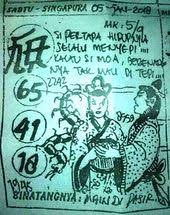 SABTU - SINGAPURA 05 - JAN - 2018
MK: 5/4
SI PERTAPA HIDUPNYA
SELALU MENYEPI !!!
KALAU SI MOA, BERENANG
NYA TAK LAU DI TEPI !!!
65
41
18
BINATANGNYA: MAIN DI PASIR